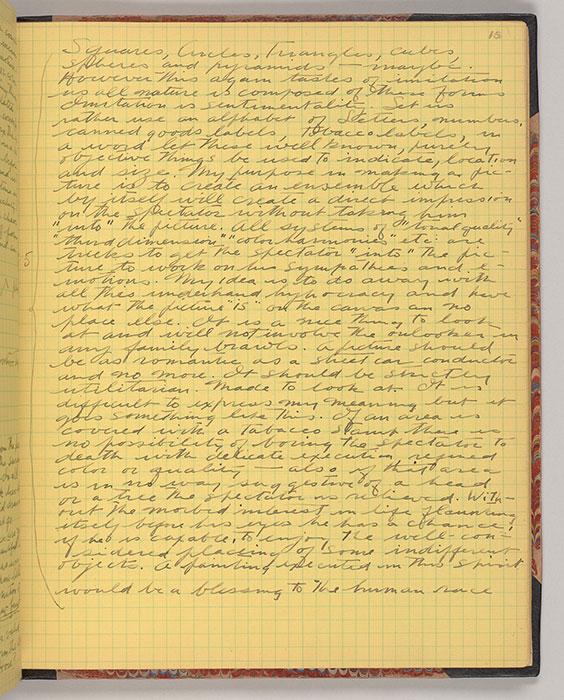 15
Squares, Circles, Triangles, cubes
spheres and pyramids — maybe.
However this again tastes of imitation
as all nature is composed of these forms
Imitation is sentimentality. Let us
rather use an alphabet of letters, numbers,
canned goods labels, tobacco labels, in
a word let these well known, purely
objective things be used to indicate, location
and size. My purpose in making a pic-
ture is to create an ensemble which
by itself will create a direct impression
on the spectator without taking him
"into" the picture. All systems of "tonal quality"
"third dimension" "color harmonies" etc are
tricks to get the spectator "into" the pic-
ture to work on his sympathies and e-
motions. My idea is to do away with
all this underhand hypocracy and have
what the picture "is" on the canvas an no
place else. It is a nice thing to look
at and will not involve the onlooker in
any family brawls. A picture should
be as romantic as a street car conductor
and no more. It should be strictly
utilitarian. Made to look at. It is
difficult to express my meaning but it
goes something like this. If an area is
covered with a tobacco stamp there is
no possibility of boring the spectator to
death with delicate execution, refined
color or quality — also if that area
is in no way suggestive of a head
or a tree the spectator is relieved. With-
out the morbid interest in life flaunting
itself before his eyes he has a chance,
if he is capable, to enjoy the well-con-
sidered placing of some indifferent
objects. A painting executed in this spirit
would be a blessing to the human race
5